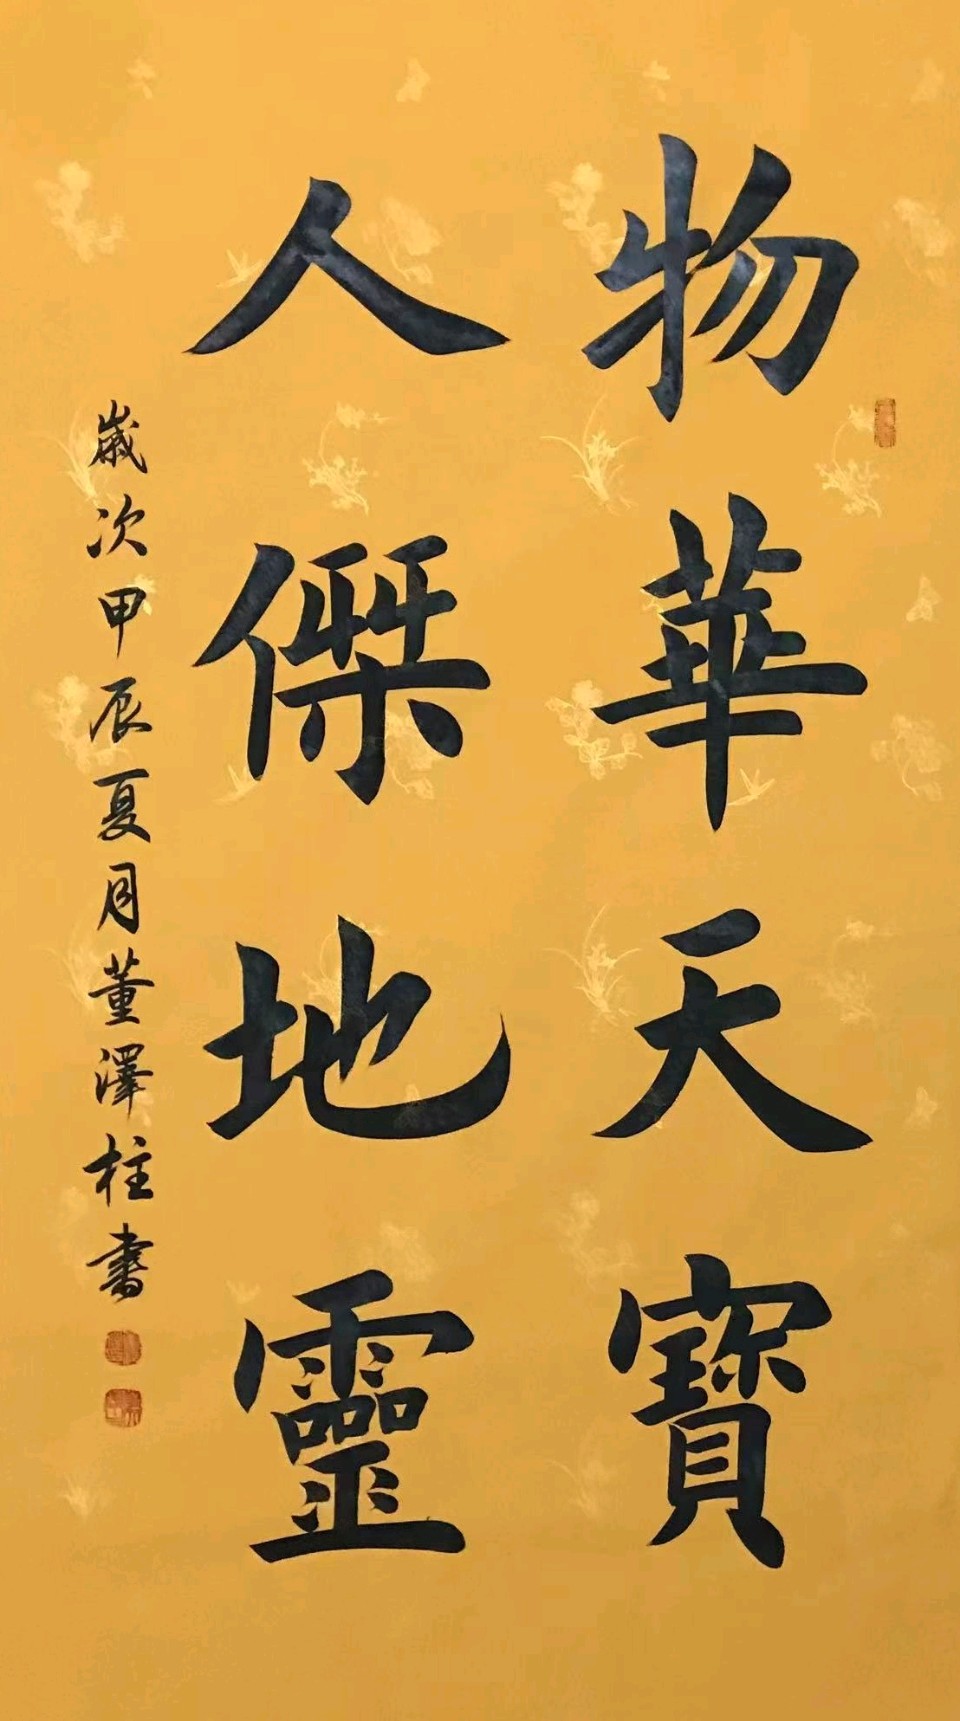 物華天寶
人傑地靈
歲次甲辰夏月董澤柱書